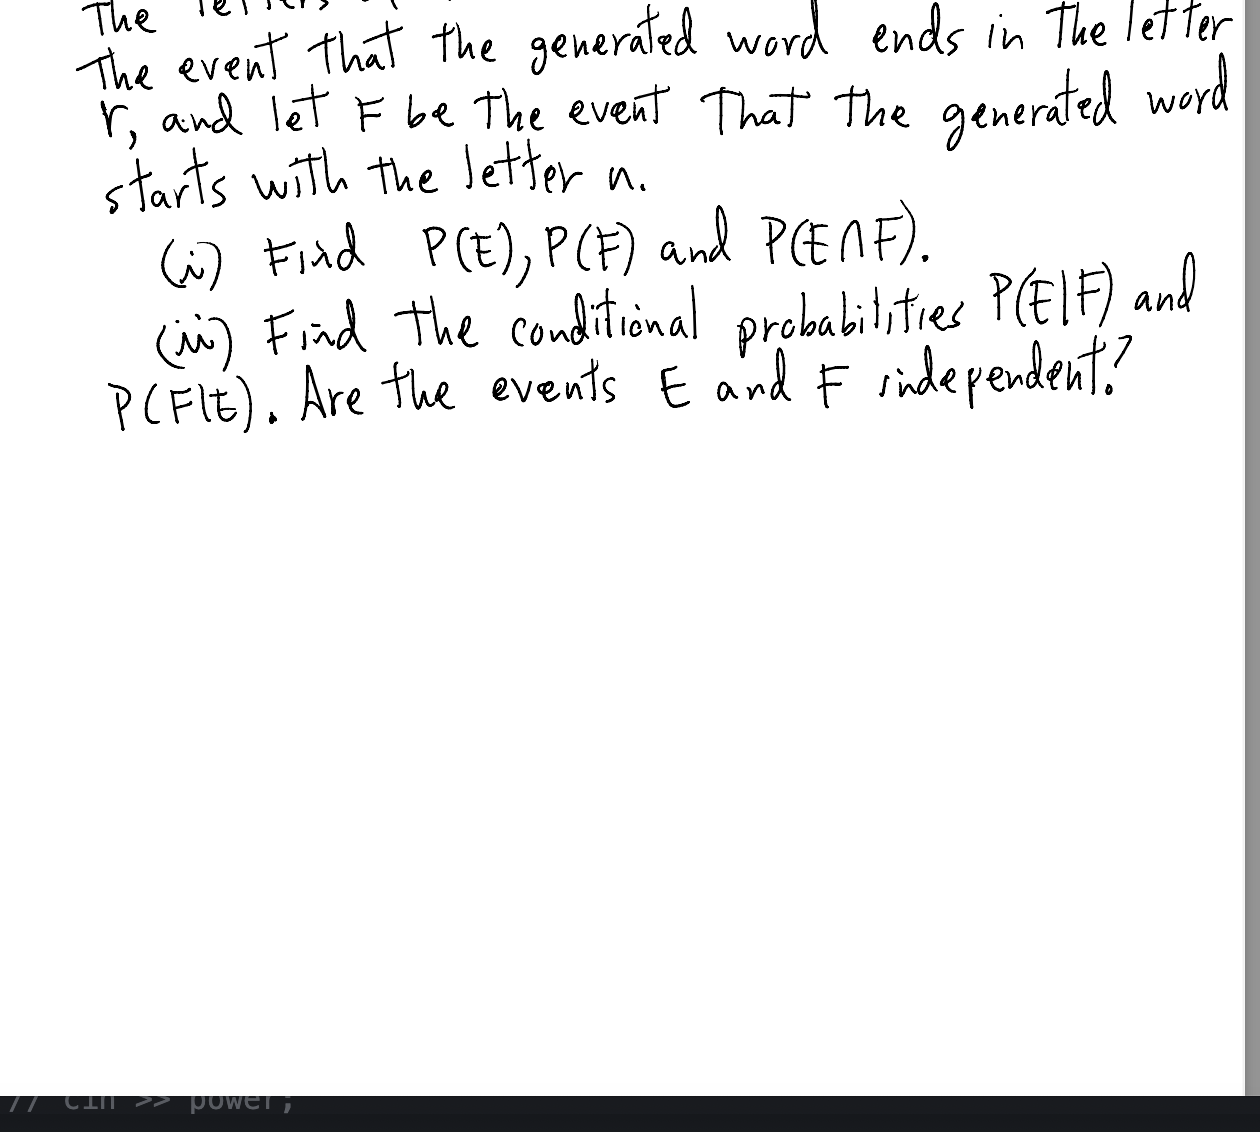 The letters
The event that the generated word ends in the letter
r, and let F be the event that the generated word
starts with the letter n.
(i) Find P(E), P(F) and P(E∩F).
(ii) Find the conditional probabilities P(E|F) and
P(F|E). Are the events E and F independent?
// cin >> power;